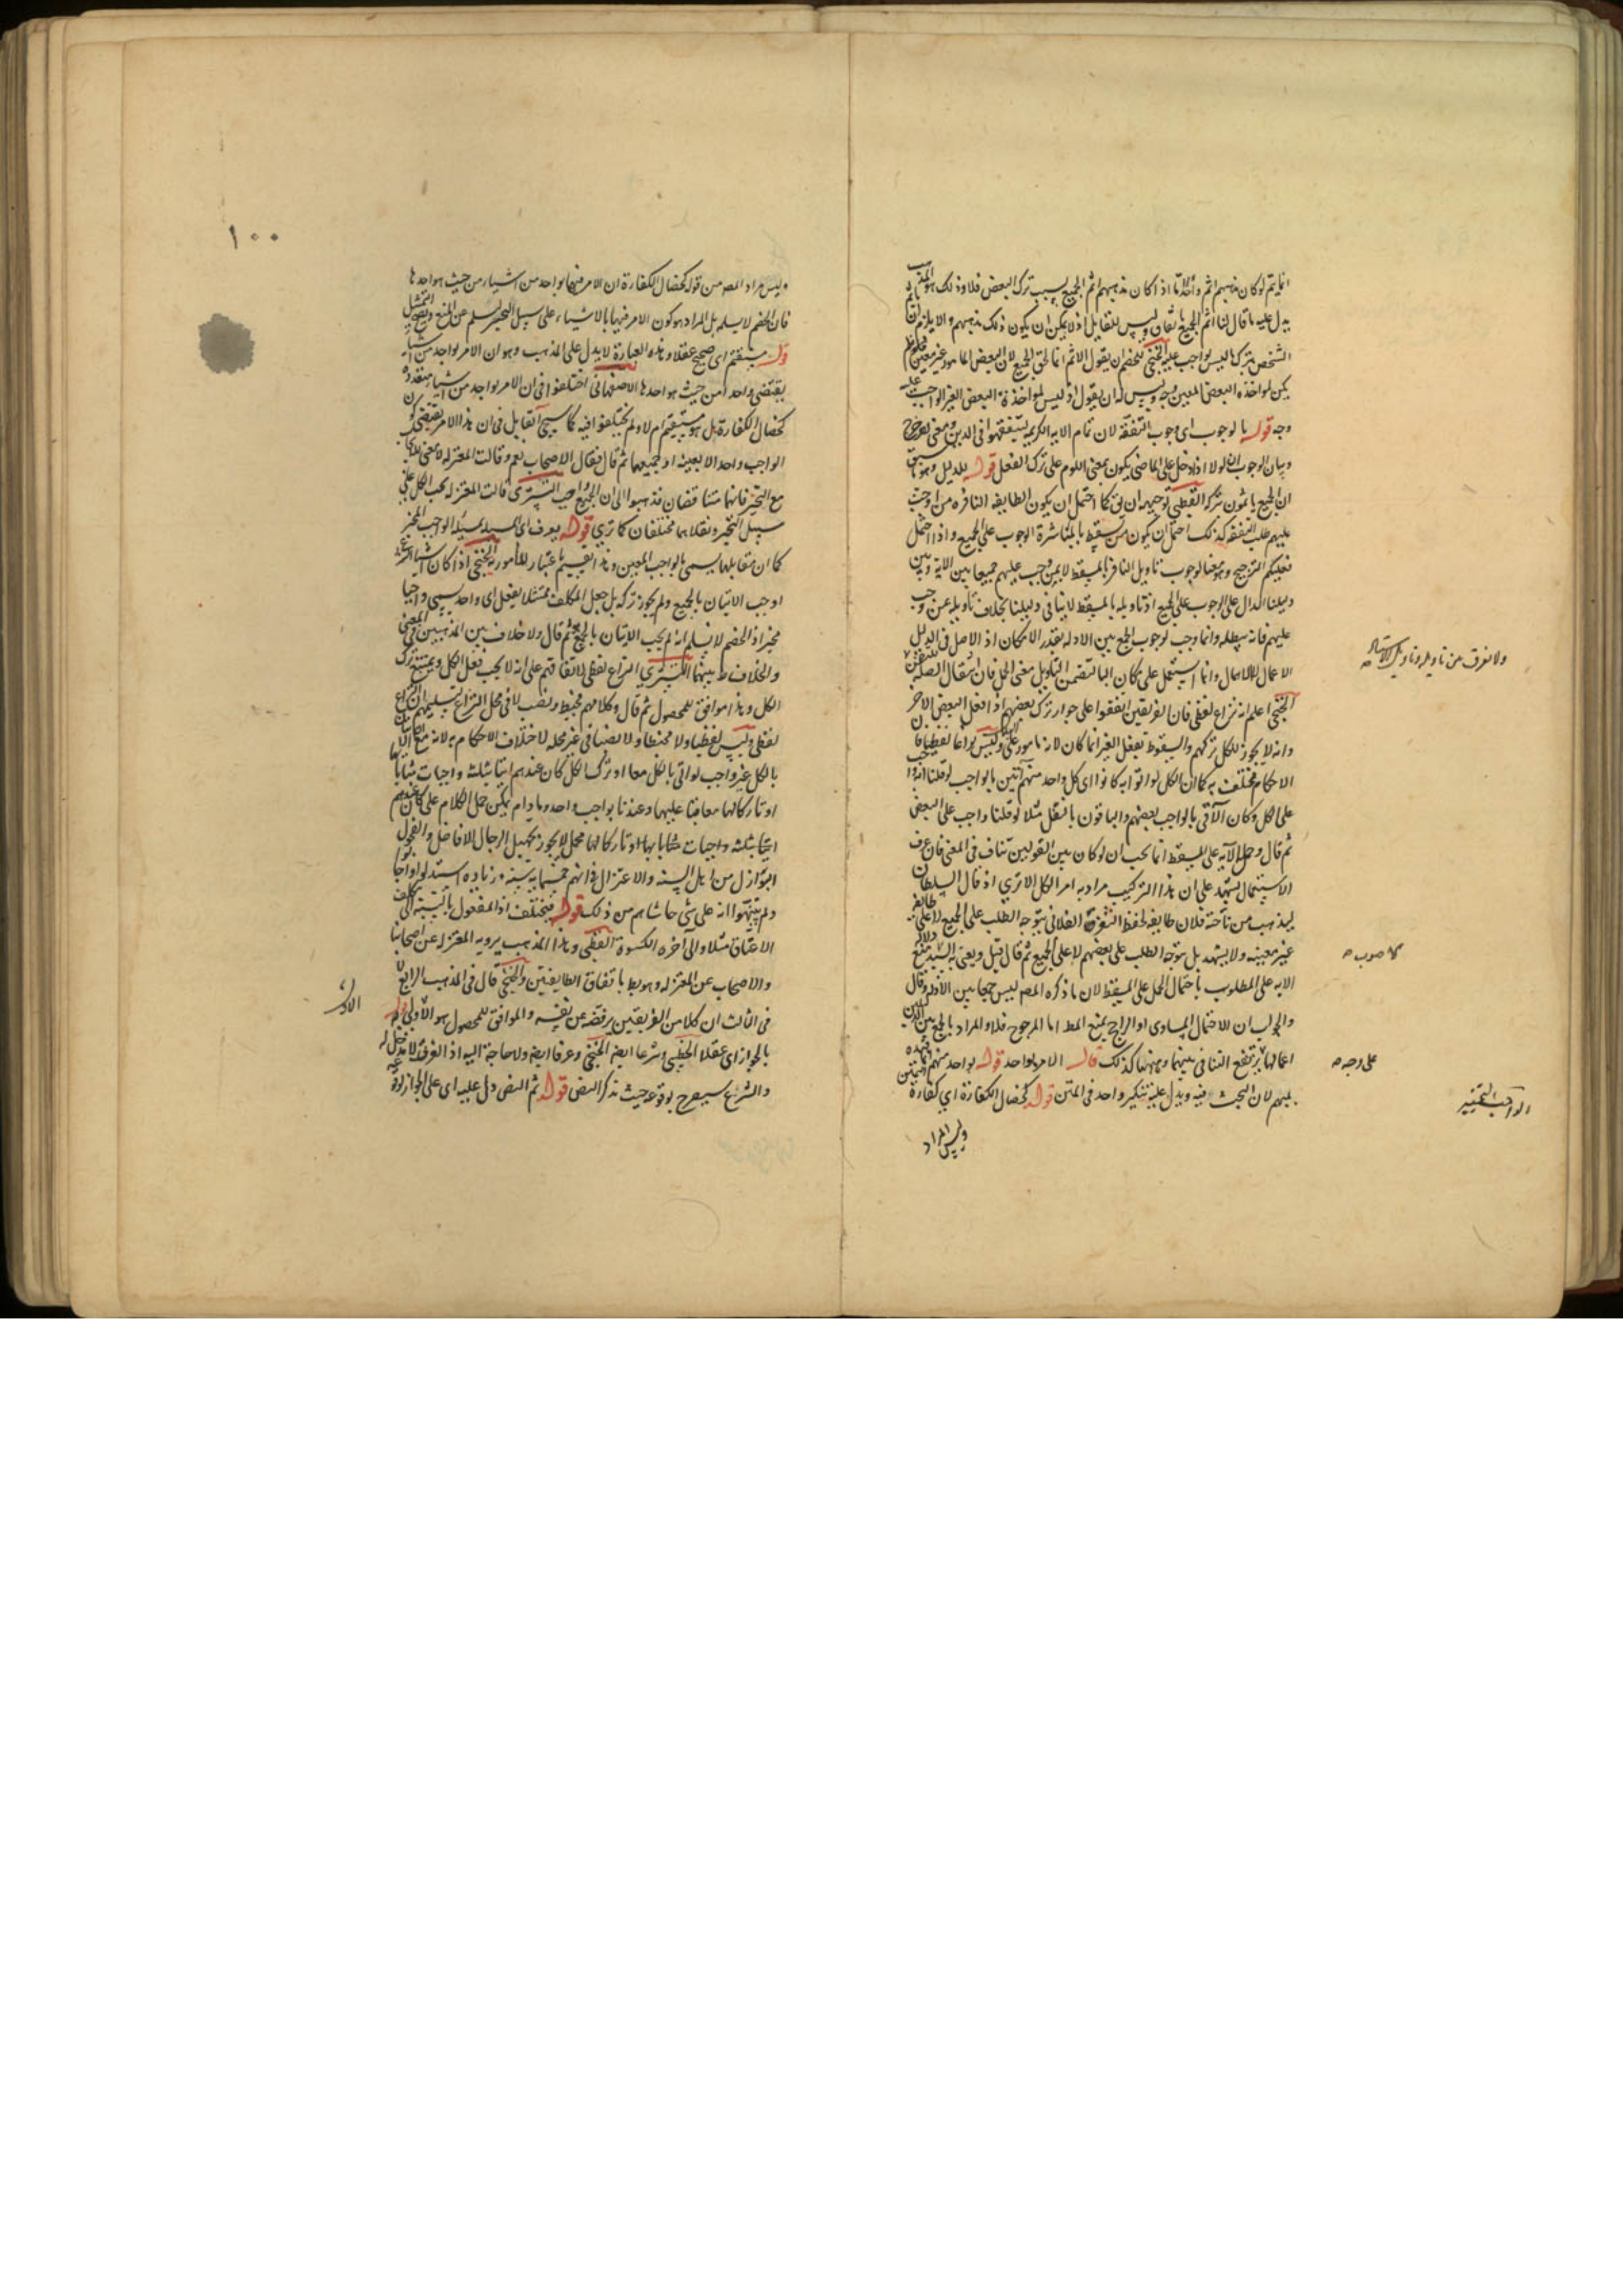 انما يتم لو كان مذهبهم اثم واحد اما اذا كان مذهبهم اثم الجميع بسبب ترك البعض فلا وذلك هو المذهب
يدل عليه ما قال لنا اثم الجميع باتفاق وليس للتقابل اذ لا يمكن ان يكون ذلك مذهبهم والا يلزم ان
الشخص بترك ما ليس بواجب عليه الخنجي للخصم ان يقول الاثم انما لحق الجميع لان البعض المامور غير معين فلو لم
يكن لمواخذة البعض المعين وجه وليس له ان يقول اذ ليس لمواخذة البعض الغير الواجب عليه
وجه قوله بالوجوب اى وجوب التفقه لان تمام الاية الكريمة ليتفقهوا فى الدين ومعنى
وبيان الوجوب ان لولا اذا دخل على الماضى يكون بمعنى اللوم على ترك الفعل قوله للدليل وهو ما سبق
ان الجميع ياثمون بتركه القطبى توجيهه ان يق كما احتمل ان يكون الطايفة النافرة من اوجبت
عليهم طلب التفقه كذلك احتمل ان يكون من يسقط بالمباشرة الوجوب على الجميع واذا احتمل
فعليكم الترجيح وهو معنا لوجوب تاويل النافر بالمسقط لا بمن وجب عليهم جمعا بين الاية وبين
دليلنا الدال على الوجوب على الجميع اذ تاويله بالمسقط لا ينافى دليلنا بخلاف تاويله بمن وجب
عليهم فانه يبطله وانما وجب لوجوب الجمع بين الادلة بقدر الامكان اذ الاصل فى الدليل
الاعمال لا الاهمال وانما استعمل على مكان الباء لتضمن التاويل معنى الحمل فان انتقال الصلة للتضمن
الخنجي اعلم انه نزاع لفظى فان الفريقين اتفقوا على جواز ترك بعضهم اذا فعل البعض الاخر
وانه لا يجوز للكل تركهم والسقوط بفعل الغير انما كان لانه مامور على وليس نزاعا لفظيا فان
الاحكام مختلفة به كما ان الكل لو اتوا به كانوا اى كل واحد منهم آتين بالواجب لو قلنا انه واجب
على الكل وكان الآتى بالواجب بعضهم والباقون بالنفل مثلا لو قلنا واجب على البعض
ثم قال وحمل الآية على المسقط انما يجب ان لو كان بين القولين تناف فى المعنى فان عرف
الاستعمال يشهد على ان هذا التركيب مراد به امر الكل الا ترى اذ قال السلطان
ليذهب من ناحية فلان طايفة لحفظ الثغرة الفلانى يتوجه الطلب على الجميع لا على طايفة
غير معينة ولا يشهد بل يتوجه الطلب على بعضهم لا على الجميع ثم قال قيل ويعنى به السيد تمنع دلالة
الاية على المطلوب باحتمال الحمل على المسقط لان ما ذكره المصـ ليس جمعا بين الادلة وقال
والجواب ان الاحتمال المساوى او الراجح يمنع المط اما المرجوح فلا والمراد بالجمع بين الدليلين
اعمالهما يرتفع التنافى بينهما وههنا كذلك قال الامر بواحد قوله بواحد مبهم
مبهم لان البحث فيه ويدل عليه تنكير واحد فى المتن قوله كخصال الكفارة اى كفارة
وليس المراد
ولا يفرق من تاويله وتاويل الاستاذ
كا صوب
على وجه
الواجب التخيير
١٠٠
وليس مراد المصـ من قوله كخصال الكفارة ان الامر فيها بواحد من اشياء من حيث هو احدها
فان الخصم لا يسلمه بل المراد هو كون الامر فيها بالاشياء على سبيل التخيير ليسلم عن المنع ويصح التمثيل
قوله مستقيم اى صحيح عقلا وهذه العبارة لا يدل على المذهب وهو ان الامر بواحد من اشياء
يقتضى واحدا من حيث هو احدها الاصفهانى اختلفوا فى ان الامر بواحد من اشيا متعددة
كخصال الكفارة بل هو مستقيم ام لا ولم يختلفوا فيه كما سيجئ القايل فى ان هذا الامر يقتضى كون
الواجب واحدا لا بعينه او جميعها ثم قال فقال الاصحاب نعم وقالت المعتزلة لا معنى للايجاب
مع التخيير فانهما متناقضان فذهبوا الى ان الجميع واجب التسترى قالت المعتزلة يجب الكل على
سبيل التخيير ونقلاهما مختلفان كما ترى قوله يعرف اى المسئلة بمسئلة الواجب المخير
كما ان مقابلها يسمى بالواجب المعين وهذا تقسيم باعتبار المامور به الخنجي اذا كان اشيا
اوجب الاتيان بالجميع ولم يجوز تركه بل جعل المكلف ممتثلا بفعل اى واحد يسمى واجبا
مخيرا اذ الخصم لا يسلم انه لم يجب الاتيان بالجميع ثم قال ولا خلاف بين المذهبين فى المعنى
والخلاف ط بينهما التسترى النزاع لفظى لاتفاقهم على انه لا يجب فعل الكل ويمتنع ترك
الكل وهذا موافق للمحصول ثم قال وكلامهم مخبط ونصب لا فى محل النزاع لتسليمهم ان النزاع
لفظى وليس لفظيا ولا مخبطا ولا نصبا فى غير محله لاختلاف الاحكام به لانه مع ان الاتيان
بالكل غير واجب لو اتى بالكل معا او ترك الكل كان عندهم اتيا بثلثة واجبات مثابا بها
او تاركا لها معاقبا عليها وعندنا بواجب واحد وما دام يمكن حمل الكلام على
اتيا بثلثة واجبات مثابا بها او تاركا لها محمل لا يجوز تجهيل الرجال الافاضل والفحول
البوازل من اهل السنة والاعتزال فى انهم خمسماية سنة وزيادة استدلوا واجابوا
ولم يتنبهوا انه على شئ حاشاهم من ذلك قوله فيختلف اذ المفعول بالنسبة الى مكلف
الاعتاق مثلا والى آخره الكسوة القطبى وهذا المذهب يرويه المعتزلة عن اصحابنا
والاصحاب عن المعتزلة وهو بط باتفاق الطايفتين والخنجي قال فى المذهب الرابع
فى الثالث ان كلا من الفريقين يرفضه عن نفسه والموافق للمحصول هو الاول قوله
بالجواز اى عقلا الخطيبى وشرعا ايضا الخنجي وعرفا ايضا ولا حاجة اليه اذ العرف لا مدخل له
والشرع سيصرح بوقوعه حيث ذكر النص قوله ثم النص دل عليه اى على الجواز
الاول